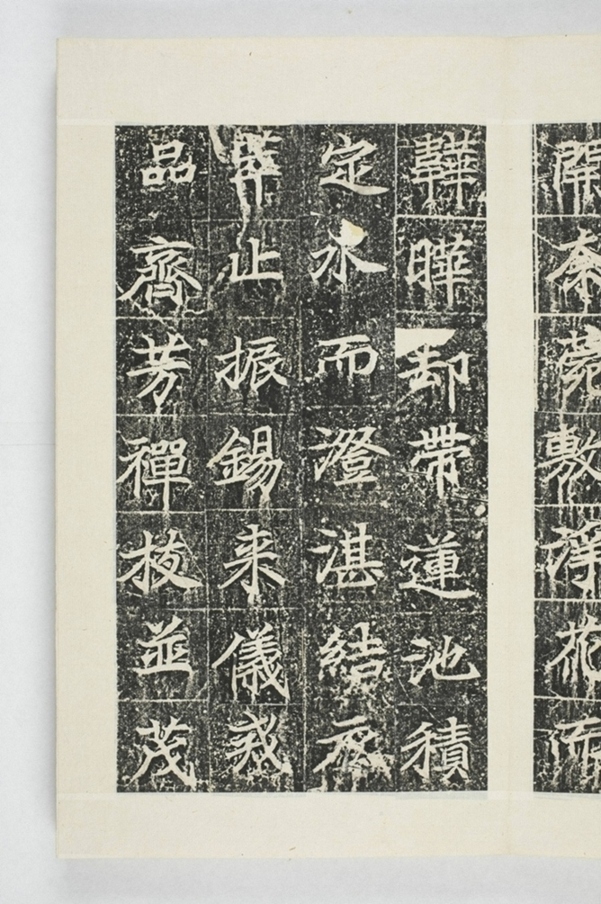 開奈苑敷淨花而
韡曄却帶蓮池積
定水而澄湛結
萃止振錫来儀戒
品齊芳禪枝並茂